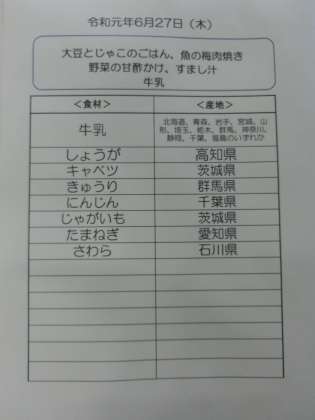 令和元年6月27日（木）
大豆とじゃこのごはん、魚の梅肉焼き
野菜の甘酢かけ、すまし汁
牛乳
＜食材＞ ＜産地＞
牛乳 北海道、青森、岩手、宮城、山
形、埼玉、栃木、群馬、神奈川、
静岡、千葉、福島のいずれか
しょうが 高知県
キャベツ 茨城県
きゅうり 群馬県
にんじん 千葉県
じゃがいも 茨城県
たまねぎ 愛知県
さわら 石川県